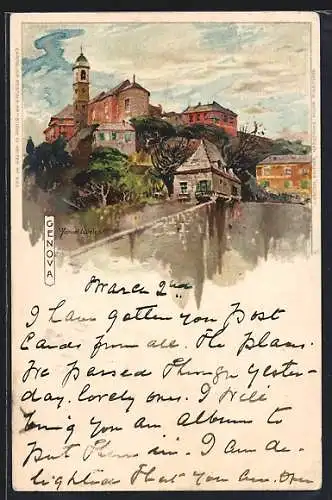 GENOVA
Manuel Wielandt
March 2nd
I have gotten you Post
Cards from all the places
we passed through yester-
day. lovely ones. I will
bring you an album to
put them in. I am de-
lighted that you are